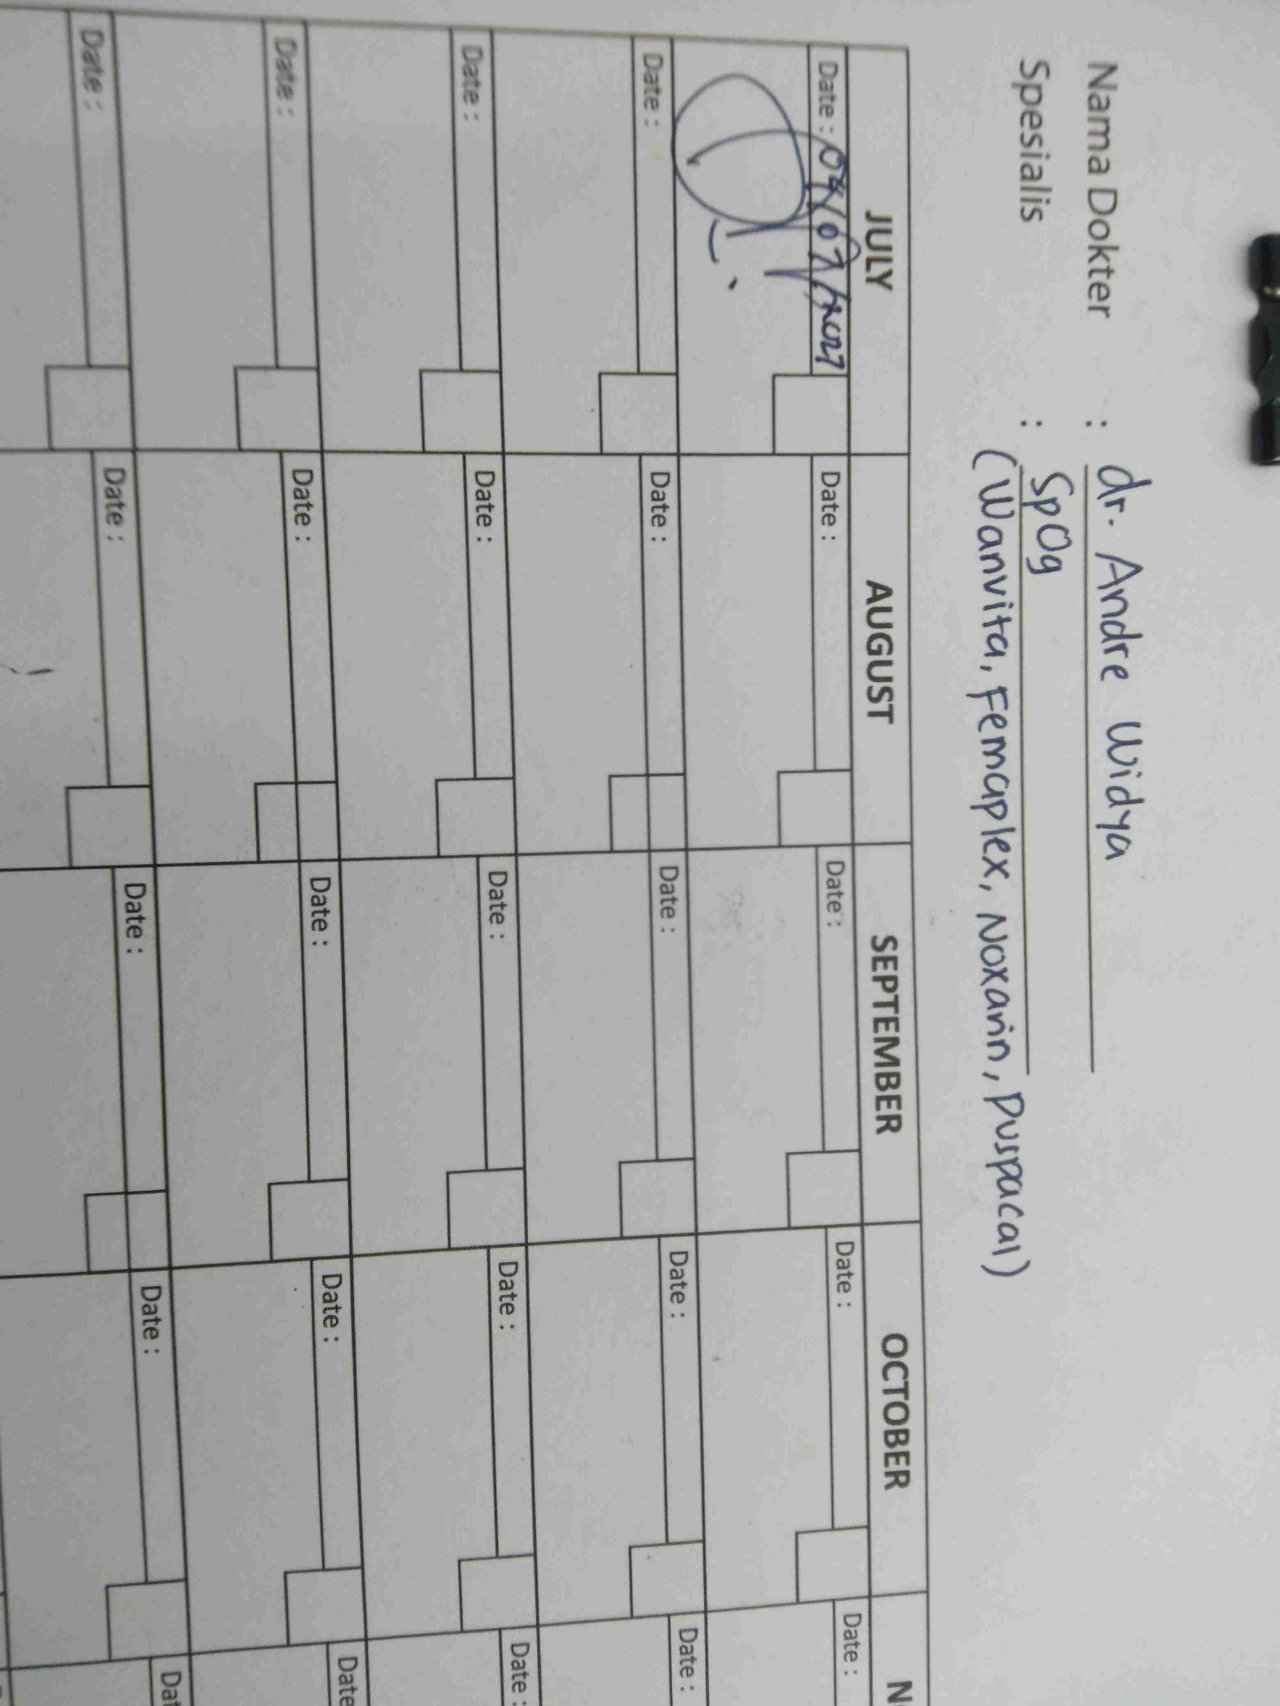 Nama Dokter : dr. Andre Widya
Spesialis : SpOg
(Wanvita, Femaplex, Noxarin, Puspacal)
JULY AUGUST SEPTEMBER OCTOBER
Date : Date : Date : Date : Date :
Date : Date : Date : Date : Date :
Date : Date : Date : Date : Date :
Date : Date : Date : Date : Date
Date : Date : Date : Date :